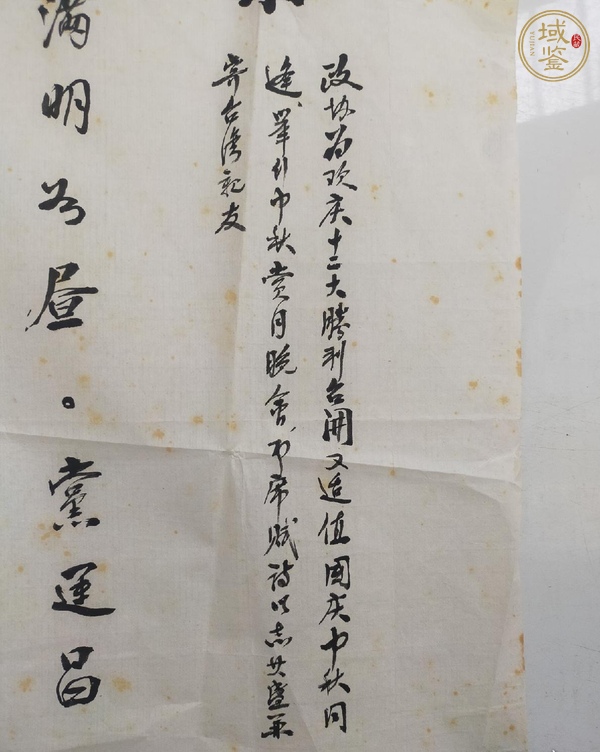 政协为欢庆十二大勝利召開又适值國庆中秋同
逢、举行中秋赏月晚会、即席賦诗以志其盛并
寄台湾親友
滿明如昼。黨运昌
域鉴
YUJIAN